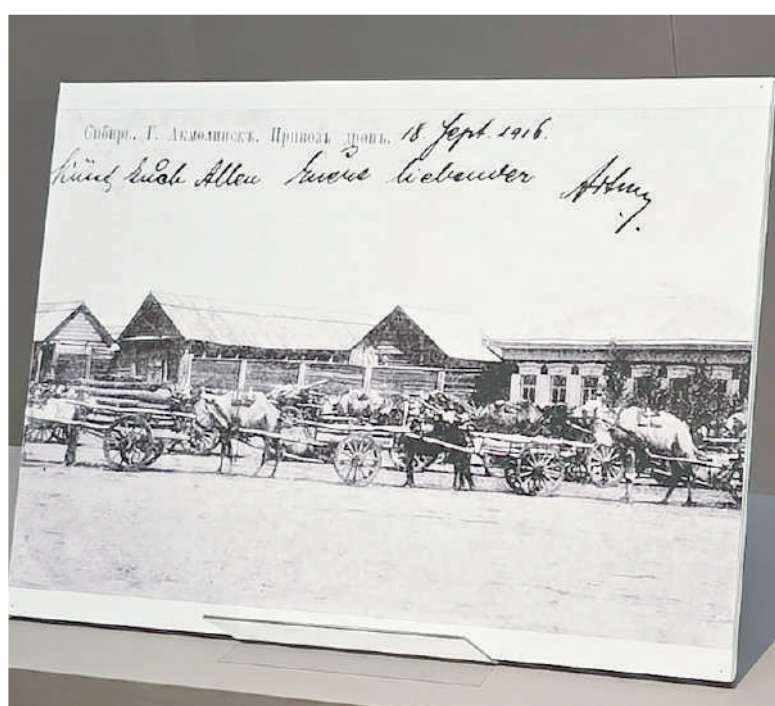 Сибирь. Г. Акмолинскъ. Привозъ дровъ. 18. Sept. 1916.
Euch Allen Euere liebender